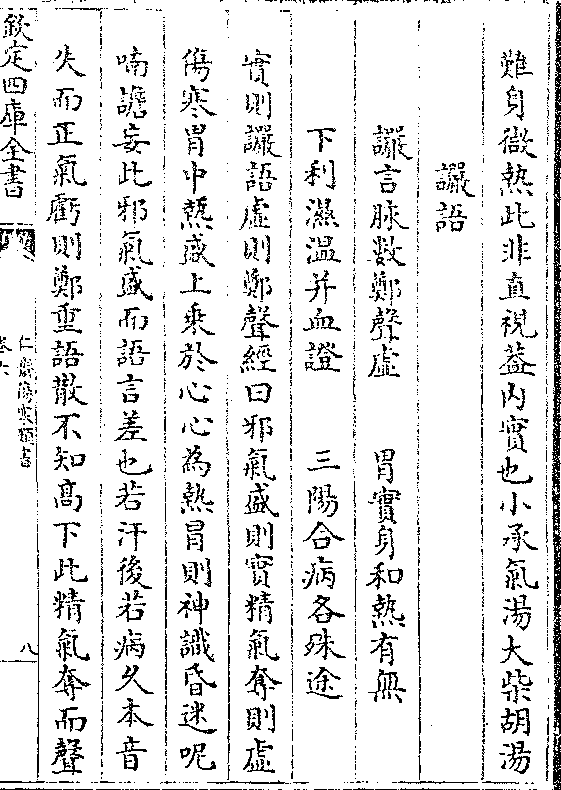 難身微熱此非直視葢内實也小承氣湯大柴胡湯
讝語
讝言脉數鄭聲虛　胃實身和熱有無
下利濕温并血證　三陽合病各殊途
實則讝語虛則鄭聲經曰邪氣盛則實精氣奪則虛
傷寒胃中熱盛上乘於心心為熱冒則神識昏迷呢
喃譫妄此邪氣盛而語言差也若汗後若病久本音
失而正氣虧則鄭重語散不知高下此精氣奪而聲
欽定四庫全書
仁齋傷寒類書
卷六
八